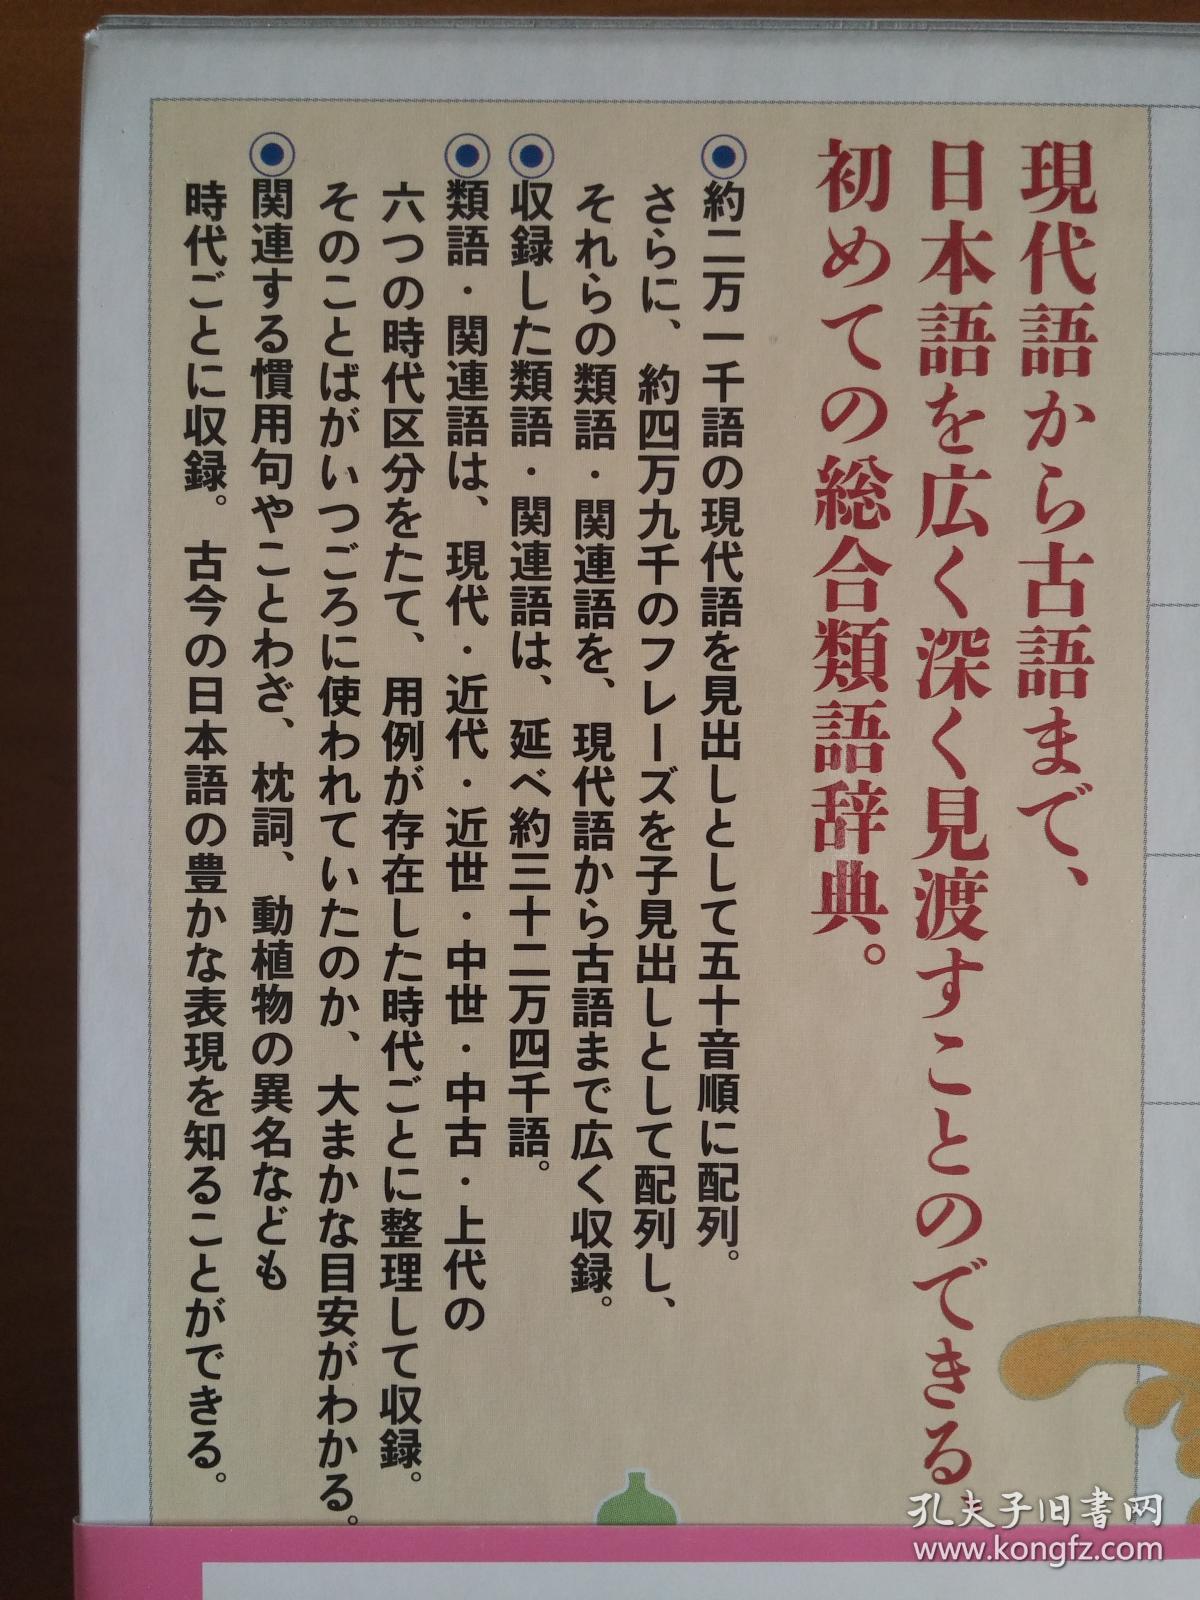 現代語から古語まで、
日本語を広く深く見渡すことのできる、
初めての総合類語辞典。
約二万一千語の現代語を見出しとして五十音順に配列。
さらに、約四万九千のフレーズを子見出しとして配列し、
それらの類語・関連語を、現代語から古語まで広く収録。
収録した類語・関連語は、延べ約三十二万四千語。
類語・関連語は、現代・近代・近世・中世・中古・上代の
六つの時代区分をたて、用例が存在した時代ごとに整理して収録。
そのことばがいつごろに使われていたのか、大まかな目安がわかる。
関連する慣用句やことわざ、枕詞、動植物の異名なども
時代ごとに収録。古今の日本語の豊かな表現を知ることができる。
孔夫子旧书网
www.kongfz.com